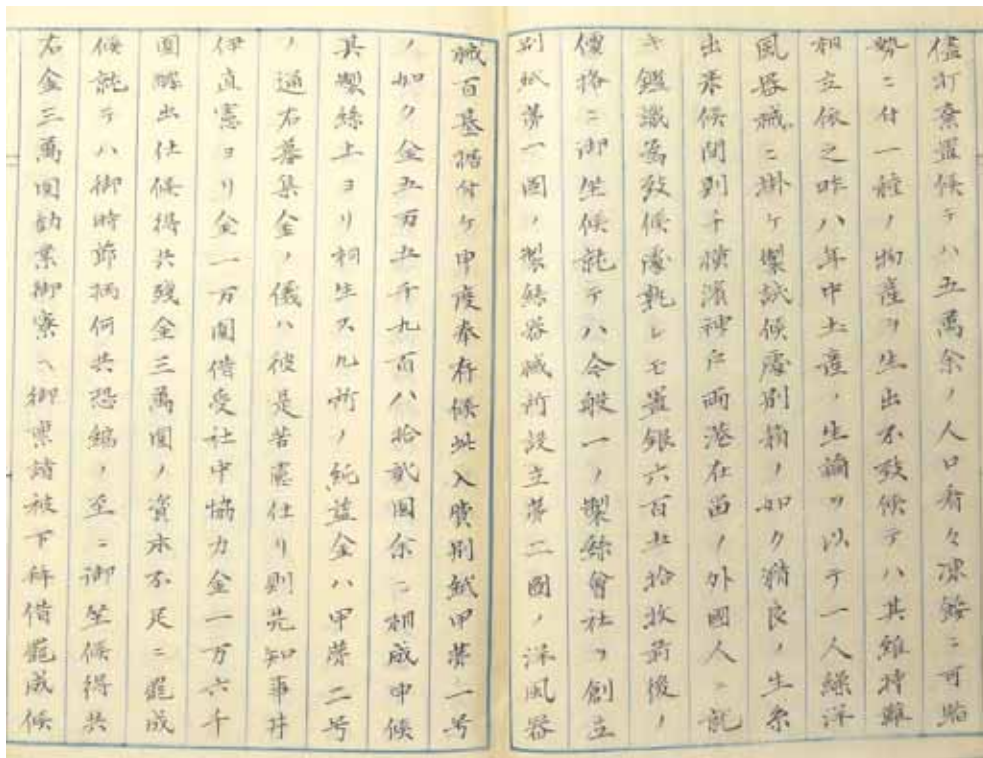 儘打棄置候テハ五萬余ノ人口看々凍餒ニ可陥
勢ニ付一種ノ物産ヲ生出不致候テハ其維持難
相立依之昨八年中土産ノ生繭ヲ以テ一人繰洋
風器械ニ掛ケ製試候處別箱ノ如ク精良ノ生糸
出来候間則チ横濱神戸両港在留ノ外國人ニ就
キ鑑識為致候處孰レモ置銀六百五拾枚前後ノ
價格ニ御坐候就テハ今般一ノ製絲會社ヲ創立
別紙第一圖ノ製絲器械所設立第二圖ノ洋風器
械百基据付ケ申度奉存候此入費別紙甲第一号
ノ如ク金五万五千九百八拾貳圓余ニ相成申候
其製絲上ヨリ相生ス九所ノ純益金ハ甲第二号
ノ通右募集金ノ儀ハ彼是苦慮仕リ則先知事井
伊直憲ヨリ金一万圓借受社中協力金一万六千
圓醵出仕候得共残金三萬圓ノ資本不足ニ罷成
候就テハ御時節柄何共恐縮ノ至ニ御坐候得共
右金三萬圓勧業御寮ヘ御稟請被下拝借罷成候